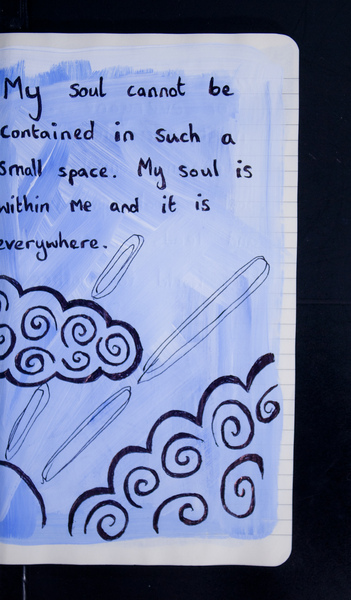 My soul cannot be
contained in such a
small space. My soul is
within me and it is
everywhere.